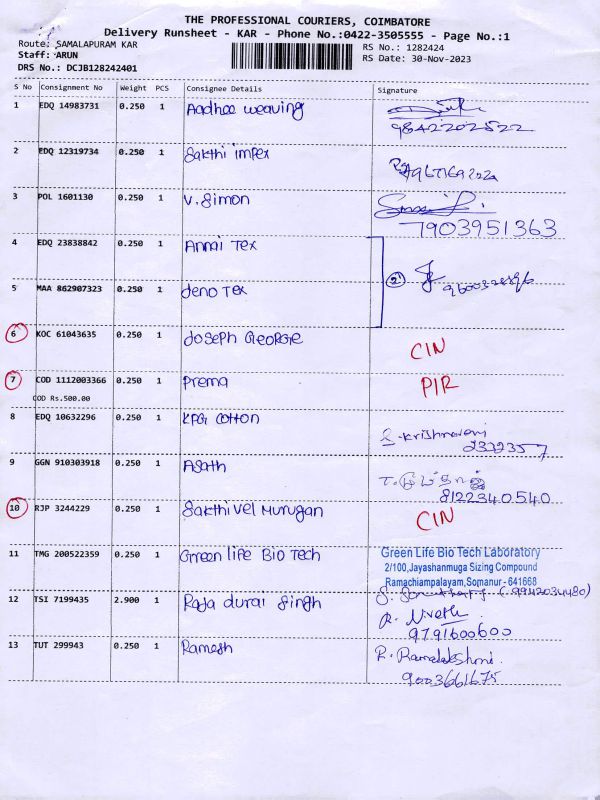 THE PROFESSIONAL COURIERS, COIMBATORE
Delivery Runsheet - KAR - Phone No.:0422-3505555 - Page No.:1
Route: SAMALAPURAM KAR
RS No.: 1282424
Staff: ARUN
RS Date: 30-Nov-2023
DRS No.: DCJB128242401
S No Consignment No Weight PCS Consignee Details Signature
1 EDQ 14983731 0.250 1 Aadhee weaving
9842202522
2 EDQ 12319734 0.250 1 Sakthi impex
3 POL 1601130 0.250 1 V. Simon
7903951363
4 EDQ 23838842 0.250 1 Annai Tex
5 MAA 862907323 0.250 1 Jeno Tex
2
6 KOC 61043635 0.250 1 Joseph George
CIN
7 COD 1112003366 0.250 1 Prema PIR
COD Rs.500.00
8 EDQ 10632296 0.250 1 KPG Cotton
2322357
9 GGN 910303918 0.250 1 Asath
8122340540
10 RJP 3244229 0.250 1 Sakthivel Murugan CIN
11 TMG 200522359 0.250 1 Green life Bio Tech
Green Life Bio Tech Laboratory
2/100,Jayashanmuga Sizing Compound
Ramachiampalayam,Somanur - 641668
12 TSI 7199435 2.900 1 Raja durai Singh
(9942034480)
R. Nivetha
9791600600
13 TUT 299943 0.250 1 Ramesh R. Ramalakshmi.
9003661675